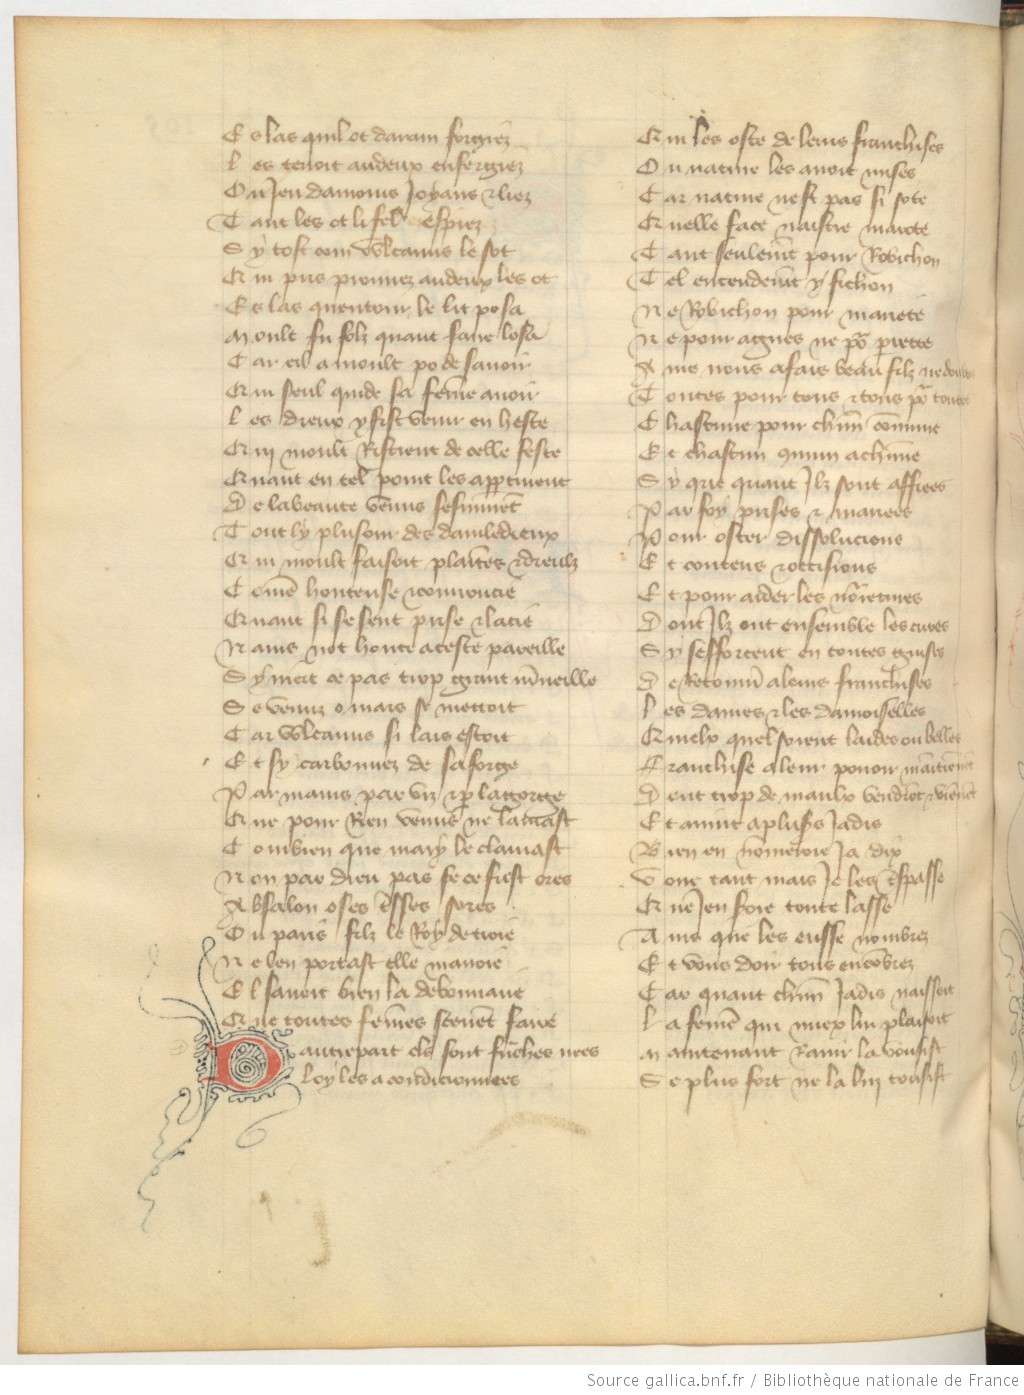 Es las quil ot darain forgiez
Les tenoit andeux enfergiez
Ou Jeu damours Joyans & liez
Tant les ot li felz espiez
Sy tost com vulcanus le sot
Qui pris prouvez andeux les ot
Es las quentour le lit posa
Moult fu folz quant faire losa
Car cil a moult po de savoir
Qui seul quide sa feme avoir
Les dieux y fist venir en heste
Qui moult Ristrent de celle feste
Quant en tel point les apparcurent
De la beaute venus sesmurent
Tout ly plusour des damledieux
Qui moult faisoit plaintes & dieulz
Come honteuse & courroucie
Quant si se sent prise & lacie
Nains not honte a ceste pareille
Sy niert ce pas trop grant merveille
Se venuz o mars se mettoit
Car vulcanus si lais estoit
Et sy carbonnez de sa forge
Par mains par viz & par la gorge
Que pour Rien venus ne lamast
Combien que mary le clamast
Non par dieu pas se ce fust ores
Absalon o ses tresses sores
Ou paris filz le Roy de troie
Ne len portast elle manoie
El savoit bien la debonnaire
Que toutes femes scevent faire
Dautrepart els sont franches nees
Loy les a condicionnees
Qui les oste de leurs franchises
Ou nature les avoit mises
Car nature nest pas si sote
Quelle face naistre marote
Tant seulement pour Robichon
Tel entendement y fichon
Ne Robichon pour mariete
Ne pour agnes ne por perrette
Ains nous a fais beau filz ne doubtes
Toutes pour tous & tous por toutes
Chascune pour chascun comune
Et chascun comun a chascune
Sy que quant Ilz sont affiees
Par loy prises & mariees
Pour oster dissolucions
Et contens & occisions
Et pour aidier les norretures
Dont Ilz ont ensemble les cures
Sy sefforcent en toutes guises
De Retourner a leurs franchises
Les dames & les damoiselles
Quelx quel soient laides ou belles
Franchise a leur povoir maintienent
Dont trop de maulx vendront & vienent
Et avint a plusurs Jadis
Bien en nomeroie Ja dix
Voire tant mais Je les trespasse
Que Jen soie toute lasse
Ains que les eusse nombrez
Et vous doir tous encombrez
Car quant chascun Jadis naissoit
La feme qui miex lui plaisoit
Maintenant Ravir la vousist
Se plus fort ne la luy tousist
Source gallica.bnf.fr / Bibliothèque nationale de France